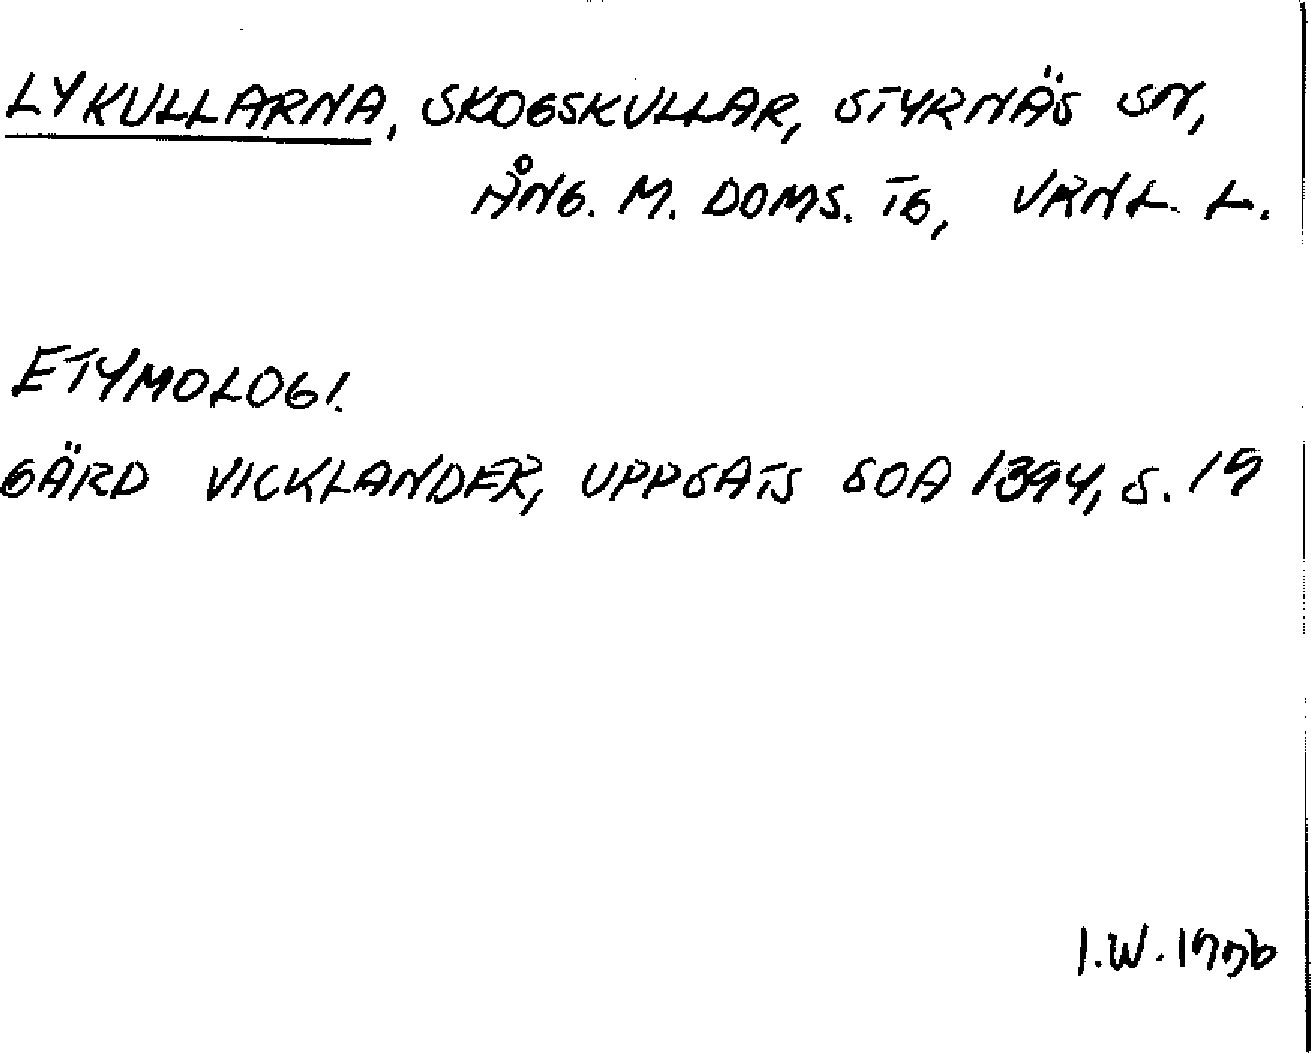 LYKULLARNA, SKOGSKULLAR, STYRNÄS SN,
ÅNG. M. DOMS. TG, VRNL. L.
ETYMOLOGI.
GÄRD VICKLANDER, UPPSATS SOA 1394, S. 19
I.W.